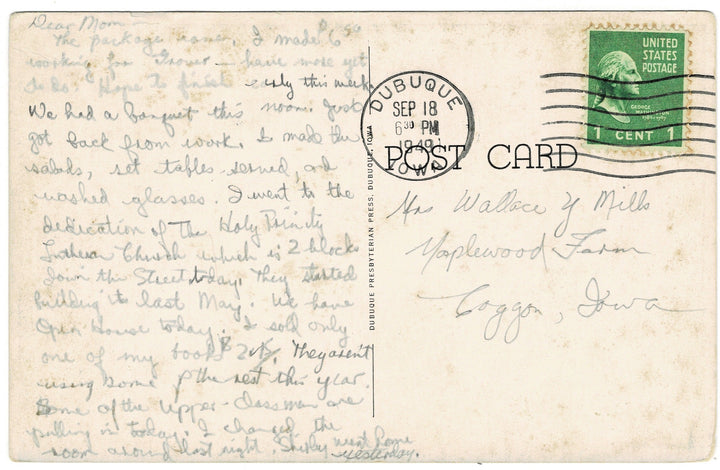 Dear Mom—
The package came. I made $6
working for Grover — have more yet
to do. Hope to finish early this week.
We had a banquet this noon. Just
got back from work. I made the
salads, set tables, served, and
washed glasses. I went to the
dedication of The Holy Trinity
Lutheran Church which is 2 blocks
down the Street today. They started
building it last May. We have
Open House today. I sold only
one of my books They aren't
using some of the rest this year.
Some of the Upper-Classmen are
pulling in today. I changed the
room around last night. Shirley went home
yesterday.
DUBUQUE PRESBYTERIAN PRESS, DUBUQUE, IOWA
DUBUQUE
SEP 18
6 30 PM
1949
IOWA
UNITED
STATES
POSTAGE
GEORGE
WASHINGTON
1 CENT 1
POST CARD
Mrs Wallace Y Mills
Maplewood Farm
Coggon, Iowa